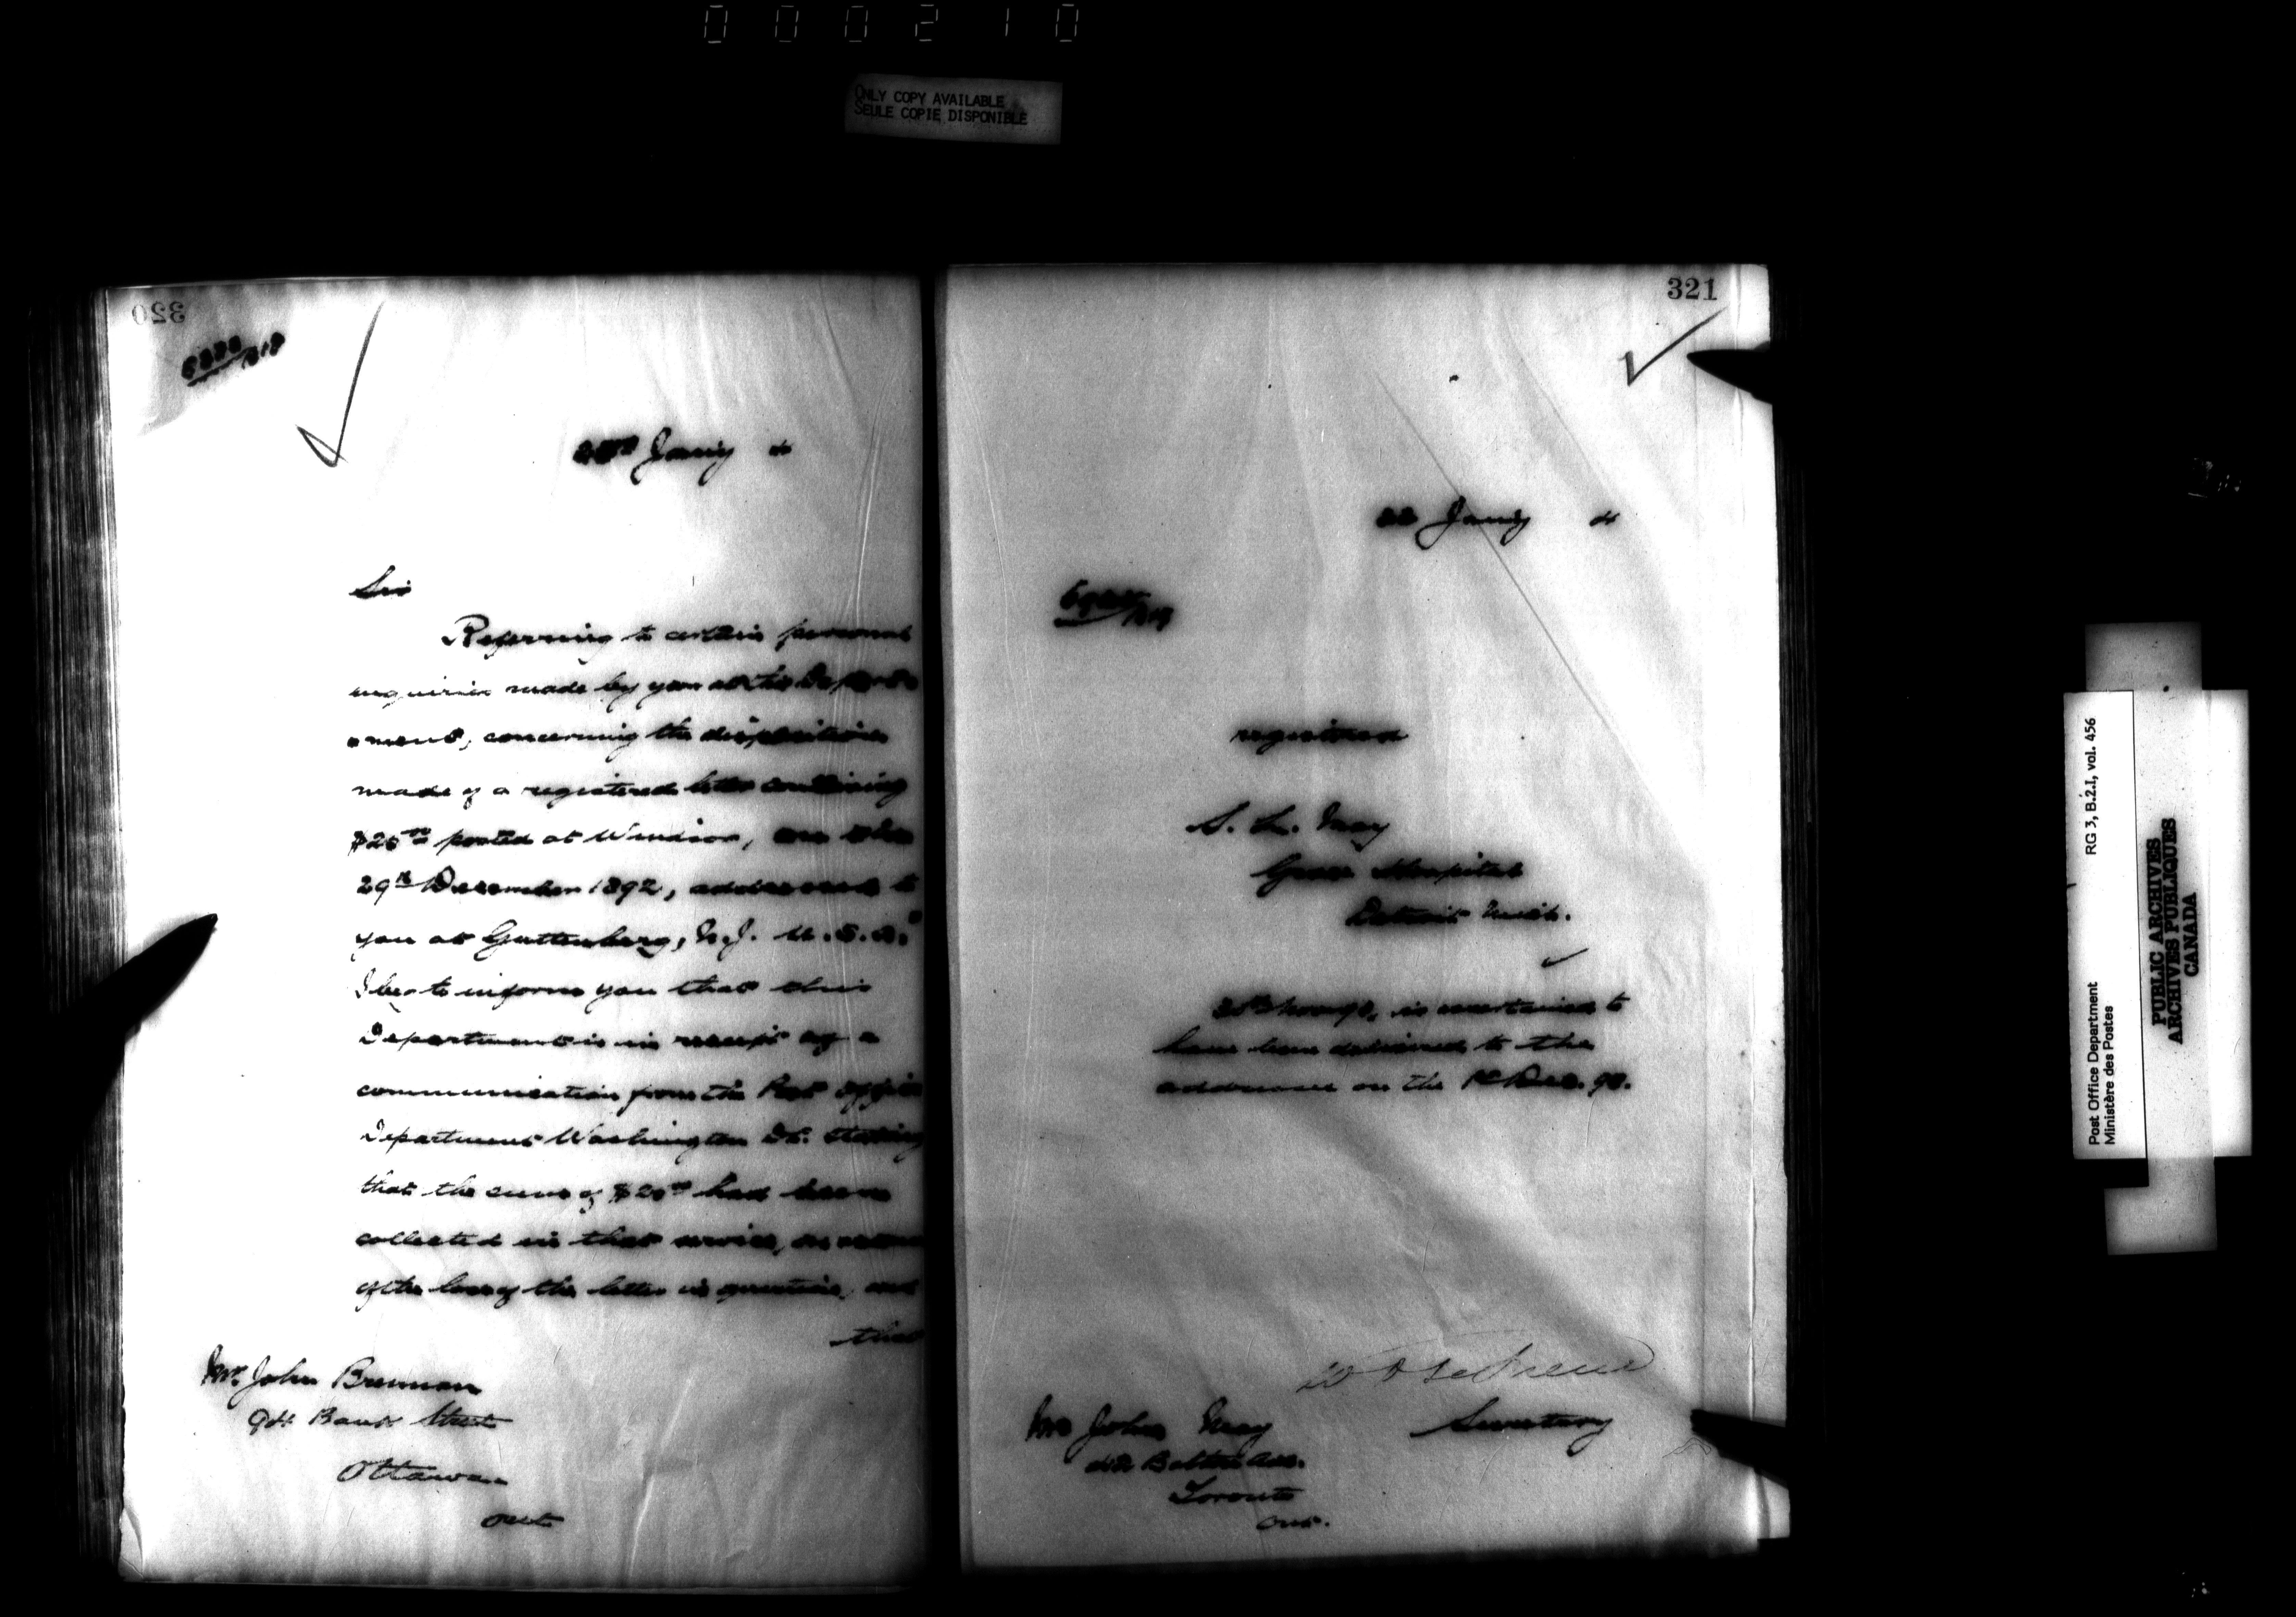 000210
ONLY COPY AVAILABLE
SEULE COPIE DISPONIBLE
320
Jany 4
Sir
Referring to certain personal
inquiries made by you at this Depart-
-ment, concerning the disposition
made of a registered letter containing
posted at Windsor, on the
29th December 1892, addressed to
you at Guttenberg, N.J. U.S.A.
I beg to inform you that this
Department is in receipt of a
communication from the Post Office
Department Washington DC. stating
that the sum of had been
collected in that service, on account
of the loss of the letter in question, and
that
Mr. John Brennan
94 Bank Street
Ottawa
Ont
321
22 Jany 4
registered
S. L. May
Grace Hospital
Detroit Mich.
is ascertained to
have been delivered to the
addressee on the 1st Dec. 93.
Secretary
John May
42 Bolton Ave.
Toronto
Ont.
RG 3, B.2.1, vol. 456
Post Office Department
Ministère des Postes
PUBLIC ARCHIVES
ARCHIVES PUBLIQUES
CANADA